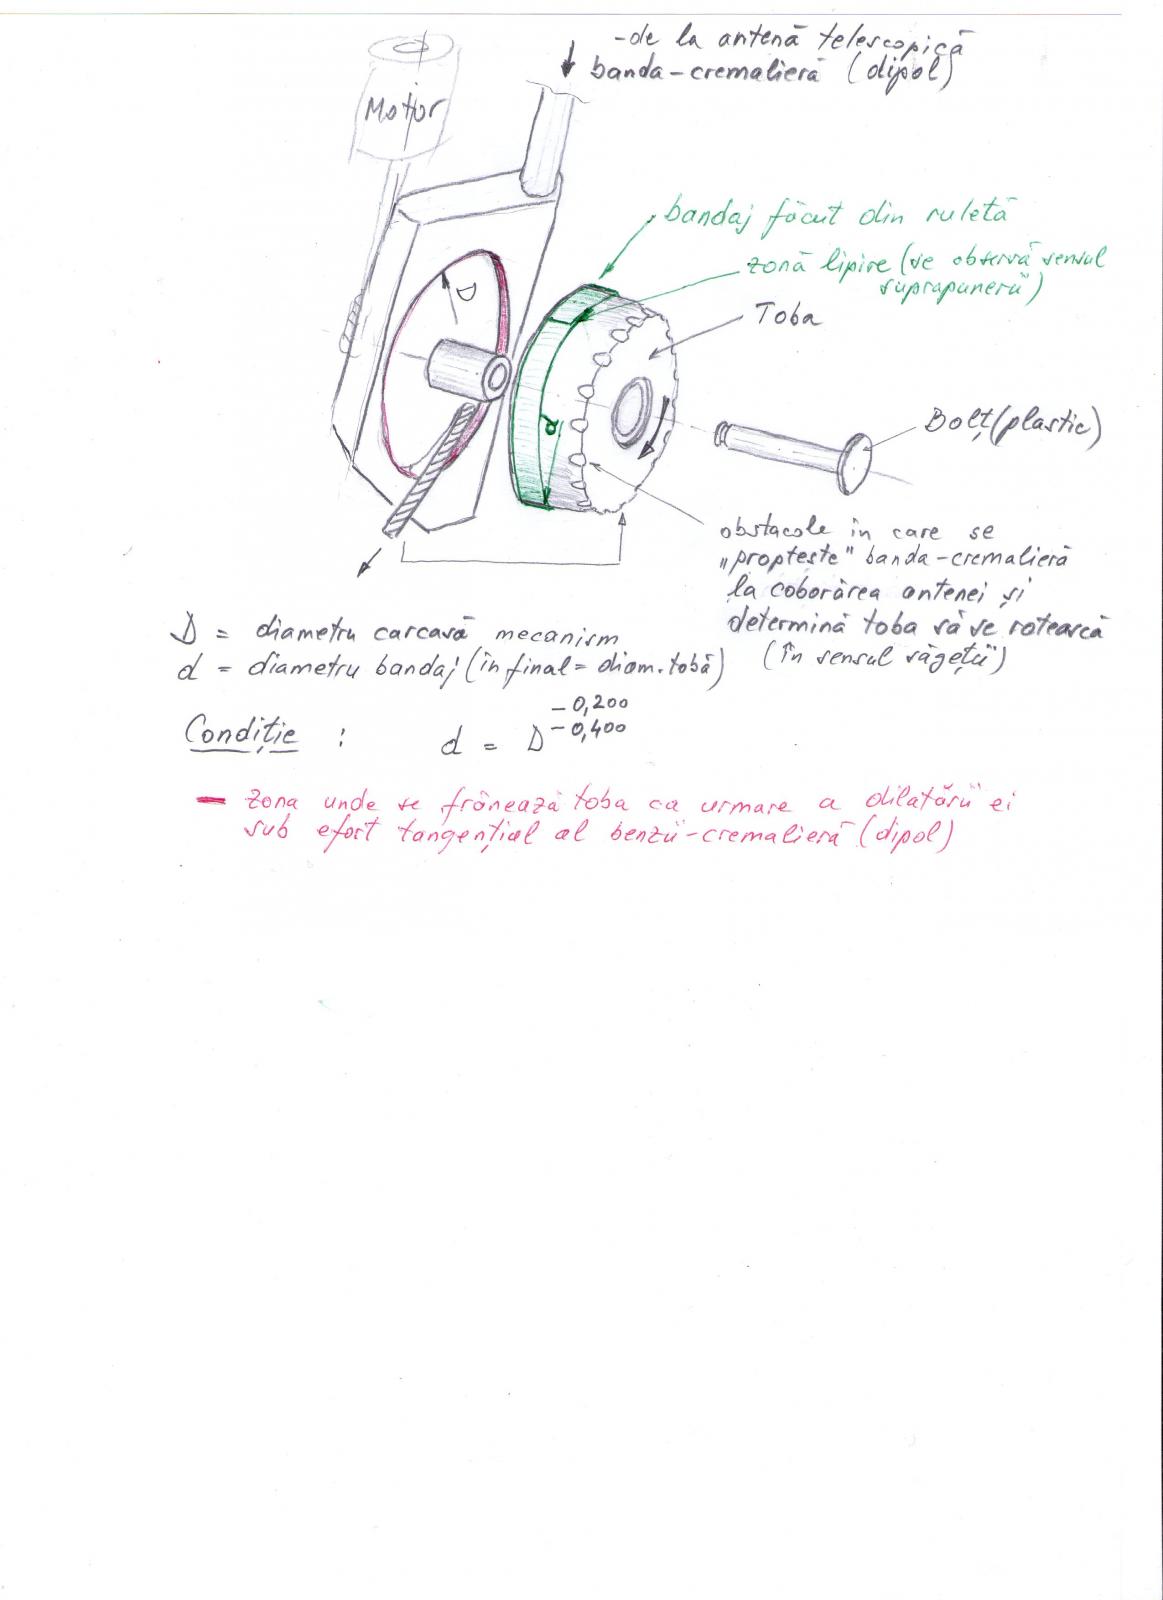 -de la antenă telescopică
banda-cremalieră (dipol)
Motor
bandaj făcut din ruletă
zonă lipire (se observă sensul
suprapunerii)
Toba
D
d
Bolț (plastic)
obstacole în care se
„proptește" banda-cremalieră
la coborârea antenei și
determină toba să se rotească
(în sensul săgeții)
D = diametru carcasă mecanism
d = diametru bandaj (în final = diam. tobă)
Condiție : d = D -0,200
-0,400
— zona unde se frânează toba ca urmare a dilatării ei
sub efort tangențial al benzii-cremalieră (dipol)